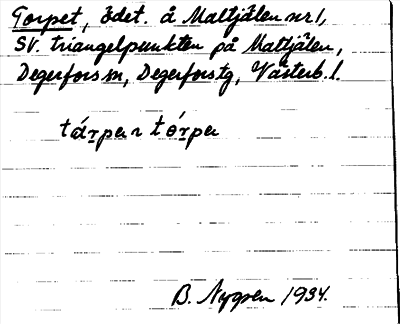 Torpet, ödet. å Maltjälen nr 1,
SV. triangelpunkten på Maltjälen,
Degerfors sn, Degerfors tg, Västerb. l.
B. Nygren 1934.